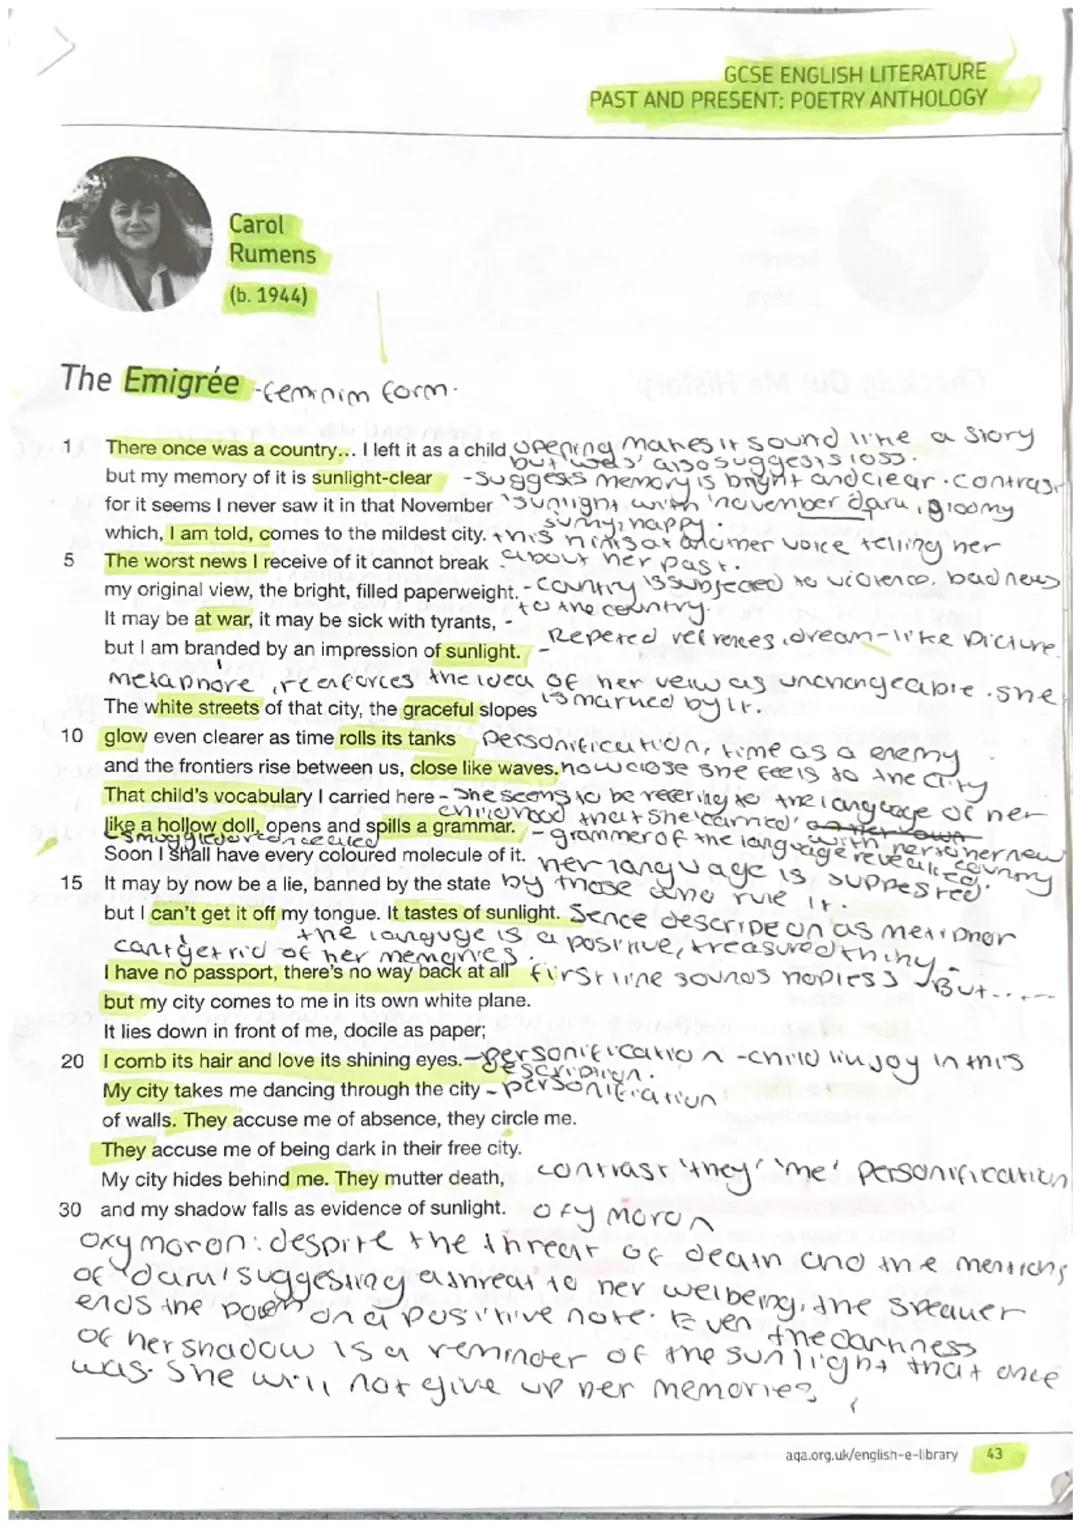 GCSE ENGLISH LITERATURE
PAST AND PRESENT: POETRY ANTHOLOGY
Carol
Rumens
(b. 1944)
The Emigrée -feminim form.
1 There once was a country... I left it as a child opening makes it sound like a story
but 'was' also suggests loss.
but my memory of it is sunlight-clear -suggests memory is bright and clear. contrast
for it seems I never saw it in that November 'sunlight with 'november dark, gloomy
sunny, happy.
which, I am told, comes to the mildest city. this hints at another voice telling her
about her past.
5 The worst news I receive of it cannot break
my original view, the bright, filled paperweight. - country is subjected to violence. bad news
to the country.
It may be at war, it may be sick with tyrants, -
Repeted refrences. dream-like picture.
but I am branded by an impression of sunlight. -
metaphore, reenforces the idea of her veiw as unchangeable. she
is marked by it.
The white streets of that city, the graceful slopes
10 glow even clearer as time rolls its tanks personification, time as a enemy
and the frontiers rise between us, close like waves. how close she feels to the city
That child's vocabulary I carried here - she seems to be refering to the language of her
childhood that she 'carried' with her to her new country
like a hollow doll, opens and spills a grammar. - grammer of the language revealed.
smuggled or concealed
Soon I shall have every coloured molecule of it. her language is suppresed
15 It may by now be a lie, banned by the state by those who rule it.
but I can't get it off my tongue. It tastes of sunlight. Sence description as metaphor
the languge is a positive, treasured thing.
cant get rid of her memories.
I have no passport, there's no way back at all first line sounds hopless But......
but my city comes to me in its own white plane.
It lies down in front of me, docile as paper;
20 I comb its hair and love its shining eyes. - personification - child like joy in this
description.
My city takes me dancing through the city - personification
of walls. They accuse me of absence, they circle me.
They accuse me of being dark in their free city.
My city hides behind me. They mutter death, contrast 'they' 'me' personification
30 and my shadow falls as evidence of sunlight. oxymoron
oxymoron: despite the threat of death and the mentions
of 'dark' suggesting a threat to her welbeing, the speaker
ends the poem on a positive note. Even the darkness
of her shadow is a reminder of the sunlight that once
was. She will not give up her memories
aqa.org.uk/english-e-library 43